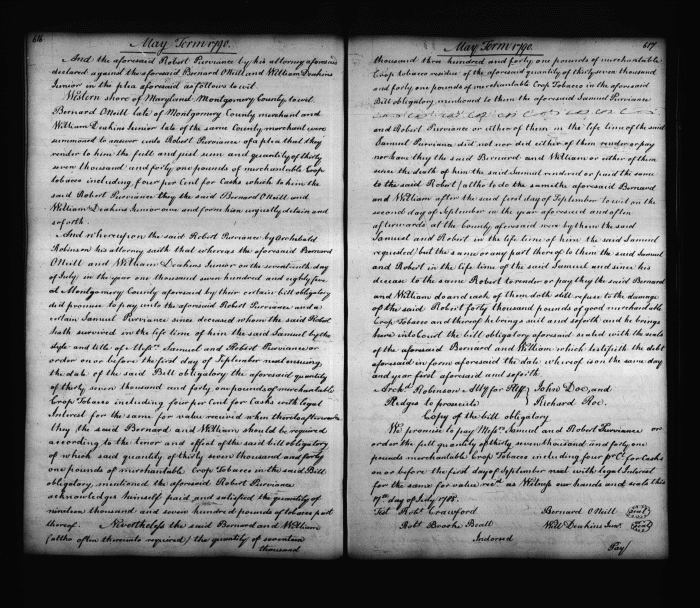 616
May Term 1790.
And the aforesaid Robert Purviance by his attorney aforesaid
declared against the aforesaid Bernard ONeill and William Deakins
Junior in the plea aforesaid as follows to wit.
Western shore of Maryland Montgomery County to wit
Bernard ONeill late of Montgomery County merchant and
William Deakins Junior late of the same County merchant were
summoned to answer unto Robert Purviance of a plea that they
render to him the full and just sum and quantity of thirty
seven thousand and forty one pounds of merchantable Crop
tobacco including four per Cent for Casks which to him the
said Robert Purviance they the said Bernard ONeill and
William Deakins Junior owe and from him unjustly detain and
soforth.
And whereupon the said Robert Purviance by Archibald
Robinson his attorney saith that whereas the aforesaid Bernard
ONeill and William Deakins Junior on the seventeenth day
of July in the year one thousand seven hundred and eighty five
at Montgomery County aforesaid by their certain bill obligatory
did promise to pay unto the aforesaid Robert Purviance and a
certain Samuel Purviance since deceased whom the said Robert
hath survived in the life time of him the said Samuel by the
style and title of Messrs. Samuel and Robert Purviance or
order on or before the first day of September next ensuing
the date of the said Bill obligatory the aforesaid quantity
of thirty seven thousand and forty one pounds of merchantable
Crop Tobacco including four per Cent for Casks with legal
Interest for the same for value received when thereto afterwards
they the said Bernard and William should be required
according to the tenor and effect of the said bill obligatory
of which said quantity of thirty seven thousand and forty
one pounds of merchantable Crop Tobacco in the said Bill
obligatory mentioned the aforesaid Robert Purviance
acknowledges himself paid and satisfied the quantity of
nineteen thousand and seven hundred pounds of tobacco part
thereof. Nevertheless the said Bernard and William
(altho often thereunto required) the quantity of seventeen
thousand
617
May Term 1790.
thousand three hundred and forty one pounds of merchantable
Crop tobacco residue of the aforesaid quantity of thirty seven thousand
and forty one pounds of merchantable Crop Tobacco in the aforesaid
Bill obligatory mentioned to them the aforesaid Samuel Purviance
and Robert Purviance or either of them in the life time of the said
Samuel Purviance did not nor did either of them render or pay
nor have they the said Bernard and William or either of them
since the death of him the said Samuel rendered or paid the same
to the said Robert (altho to do the same the aforesaid Bernard
and William after the said first day of September to wit on the
second day of September in the year aforesaid and often
afterwards at the County aforesaid were by them the said
Samuel and Robert in the life time of him the said Samuel
requested) but the same or any part thereof to them the said Samuel
and Robert in the life time of the said Samuel and since his
decease to the same Robert to render or pay they the said Bernard
and William do and each of them doth still refuse to the damage
of the said Robert forty thousand pounds of good merchantable
Crop Tobacco and thereof he brings suit and soforth and he brings
here into Court the bill obligatory aforesaid sealed with the seals
of the aforesaid Bernard and William which testifieth the debt
aforesaid in form aforesaid the date whereof is on the same day
and year first aforesaid and soforth.
Archd. Robinson Atty for Plff } John Doe, and
Pledges to prosecute } Richard Roe.
Copy of the bill obligatory
We promise to pay Messrs. Samuel and Robert Purviance or
order the full quantity of thirty seven thousand and forty one
pounds merchantable Crop Tobacco including four pr. Ct. for Casks
on or before the first day of September next with legal Interest
for the same for value recd. as Witness our hands and seals this
17th day of July 1785.
Test Robt. Crawford Bernard ONeill Seal
Robt Brooke Beall Will Deakins Junr. Seal
Indorsed
Pay